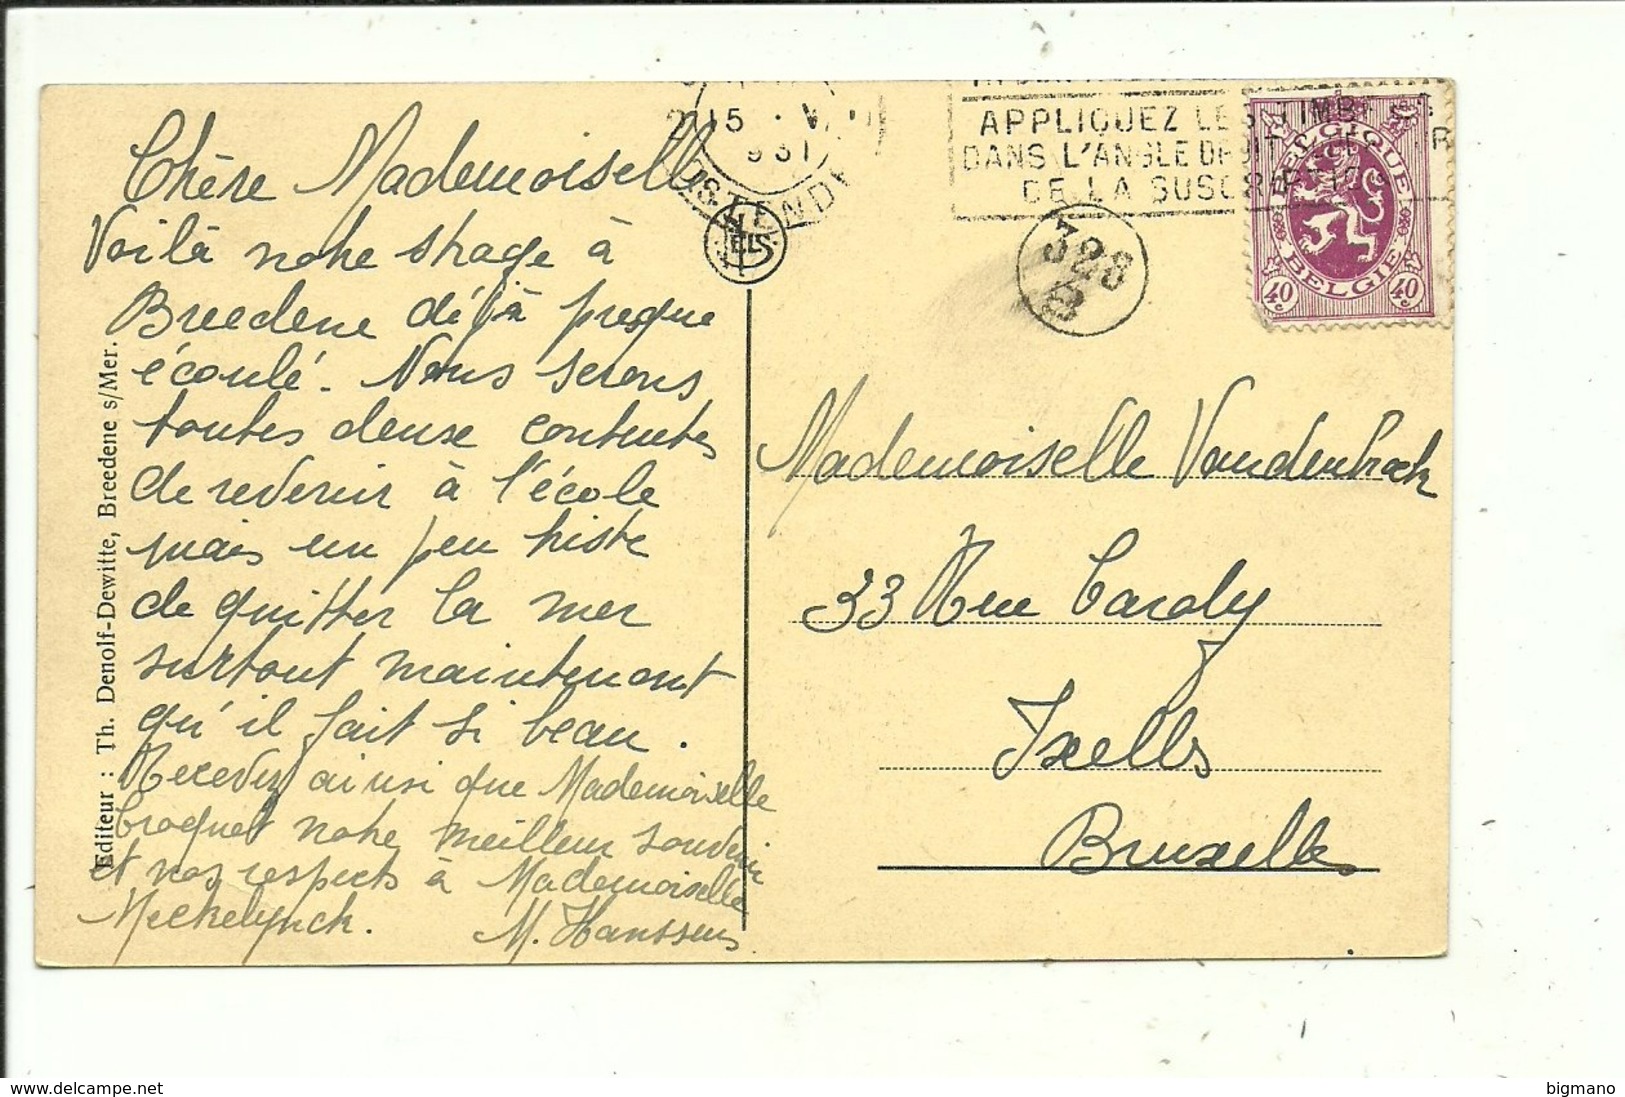 Chère Mademoiselle
Voilà notre stage à
Breedene déjà presque
écoulé. Nous serons
toutes deux contentes
de revenir à l'école
mais un peu triste
de quitter la mer
surtout maintenant
qu'il fait si beau.
Recevez ainsi que Mademoiselle
Croquet notre meilleur souvenir
et nos respects à Mademoiselle
Meckelynck. M. Hanssens
Editeur : Th. Denolf-Dewitte, Breedene s/Mer.
15 · V
931
OSTENDE
ELS
APPLIQUEZ LES TIMBRES
DANS L'ANGLE DROIT
DE LA SUSCRIPTION
328
8
BELGIQUE
BELGIE
40 40
Mademoiselle Vandenbroeck
33 Rue Caroly
Ixelles
Bruxelles
bigmano